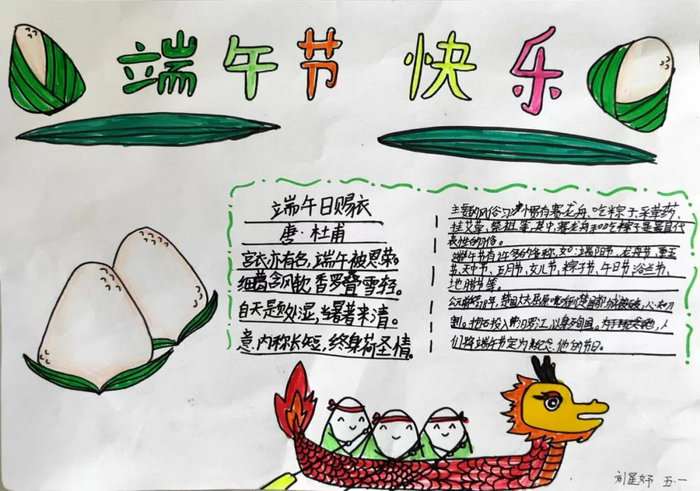 端午节快乐
端午日赐衣
唐·杜甫
宫衣亦有名,端午被恩荣。
细葛含风软,香罗叠雪轻。
自天题处湿,当暑著来清。
意内称长短,终身荷圣情。
主要的风俗习惯有赛龙舟、吃粽子、采草药、
挂艾草、祭祖等,其中赛龙舟和吃粽子是最具代
表性的习俗。
端午节有许多的名称,如:端阳节、龙舟节、重五
节、天中节、五月节、女儿节、粽子节、午日节、浴兰节、
地腊等
公元前278年,楚国大夫屈原
投入汨罗江,以身殉国。
们将端午节定为纪念他的节日。
五·一